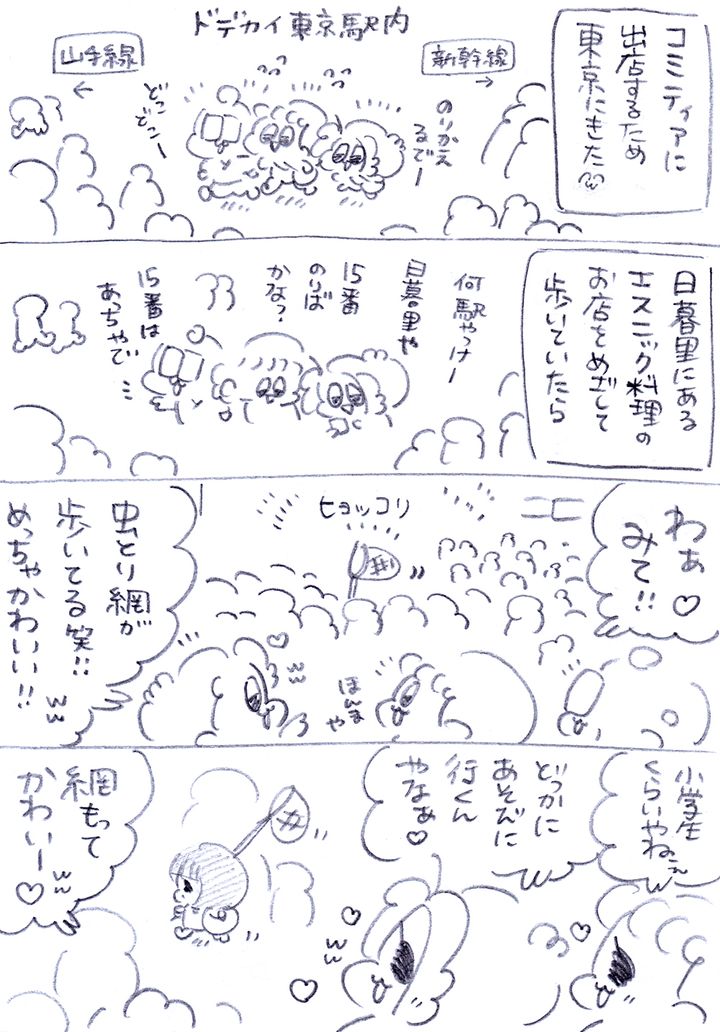 ドデカイ東京駅内
コミティアに
出店するため
東京にきた
新幹線
→
山手線
←
のりかえ
るでー
どこ
どこー
日暮里にある
エスニック料理の
お店をめざして
歩いていたら
何駅やっけー
日暮里や
15番
のりば
かなっ?
15番は
あっちやで
わぁ♡
みて!!
ヒョッコリ
虫とり網が
歩いてる笑!!
めっちゃかわいい!!
ほんま
や
小学生
くらいやねぇ
どっかに
あそびに
行くん
やなぁ♡
網もって
かわいー♡